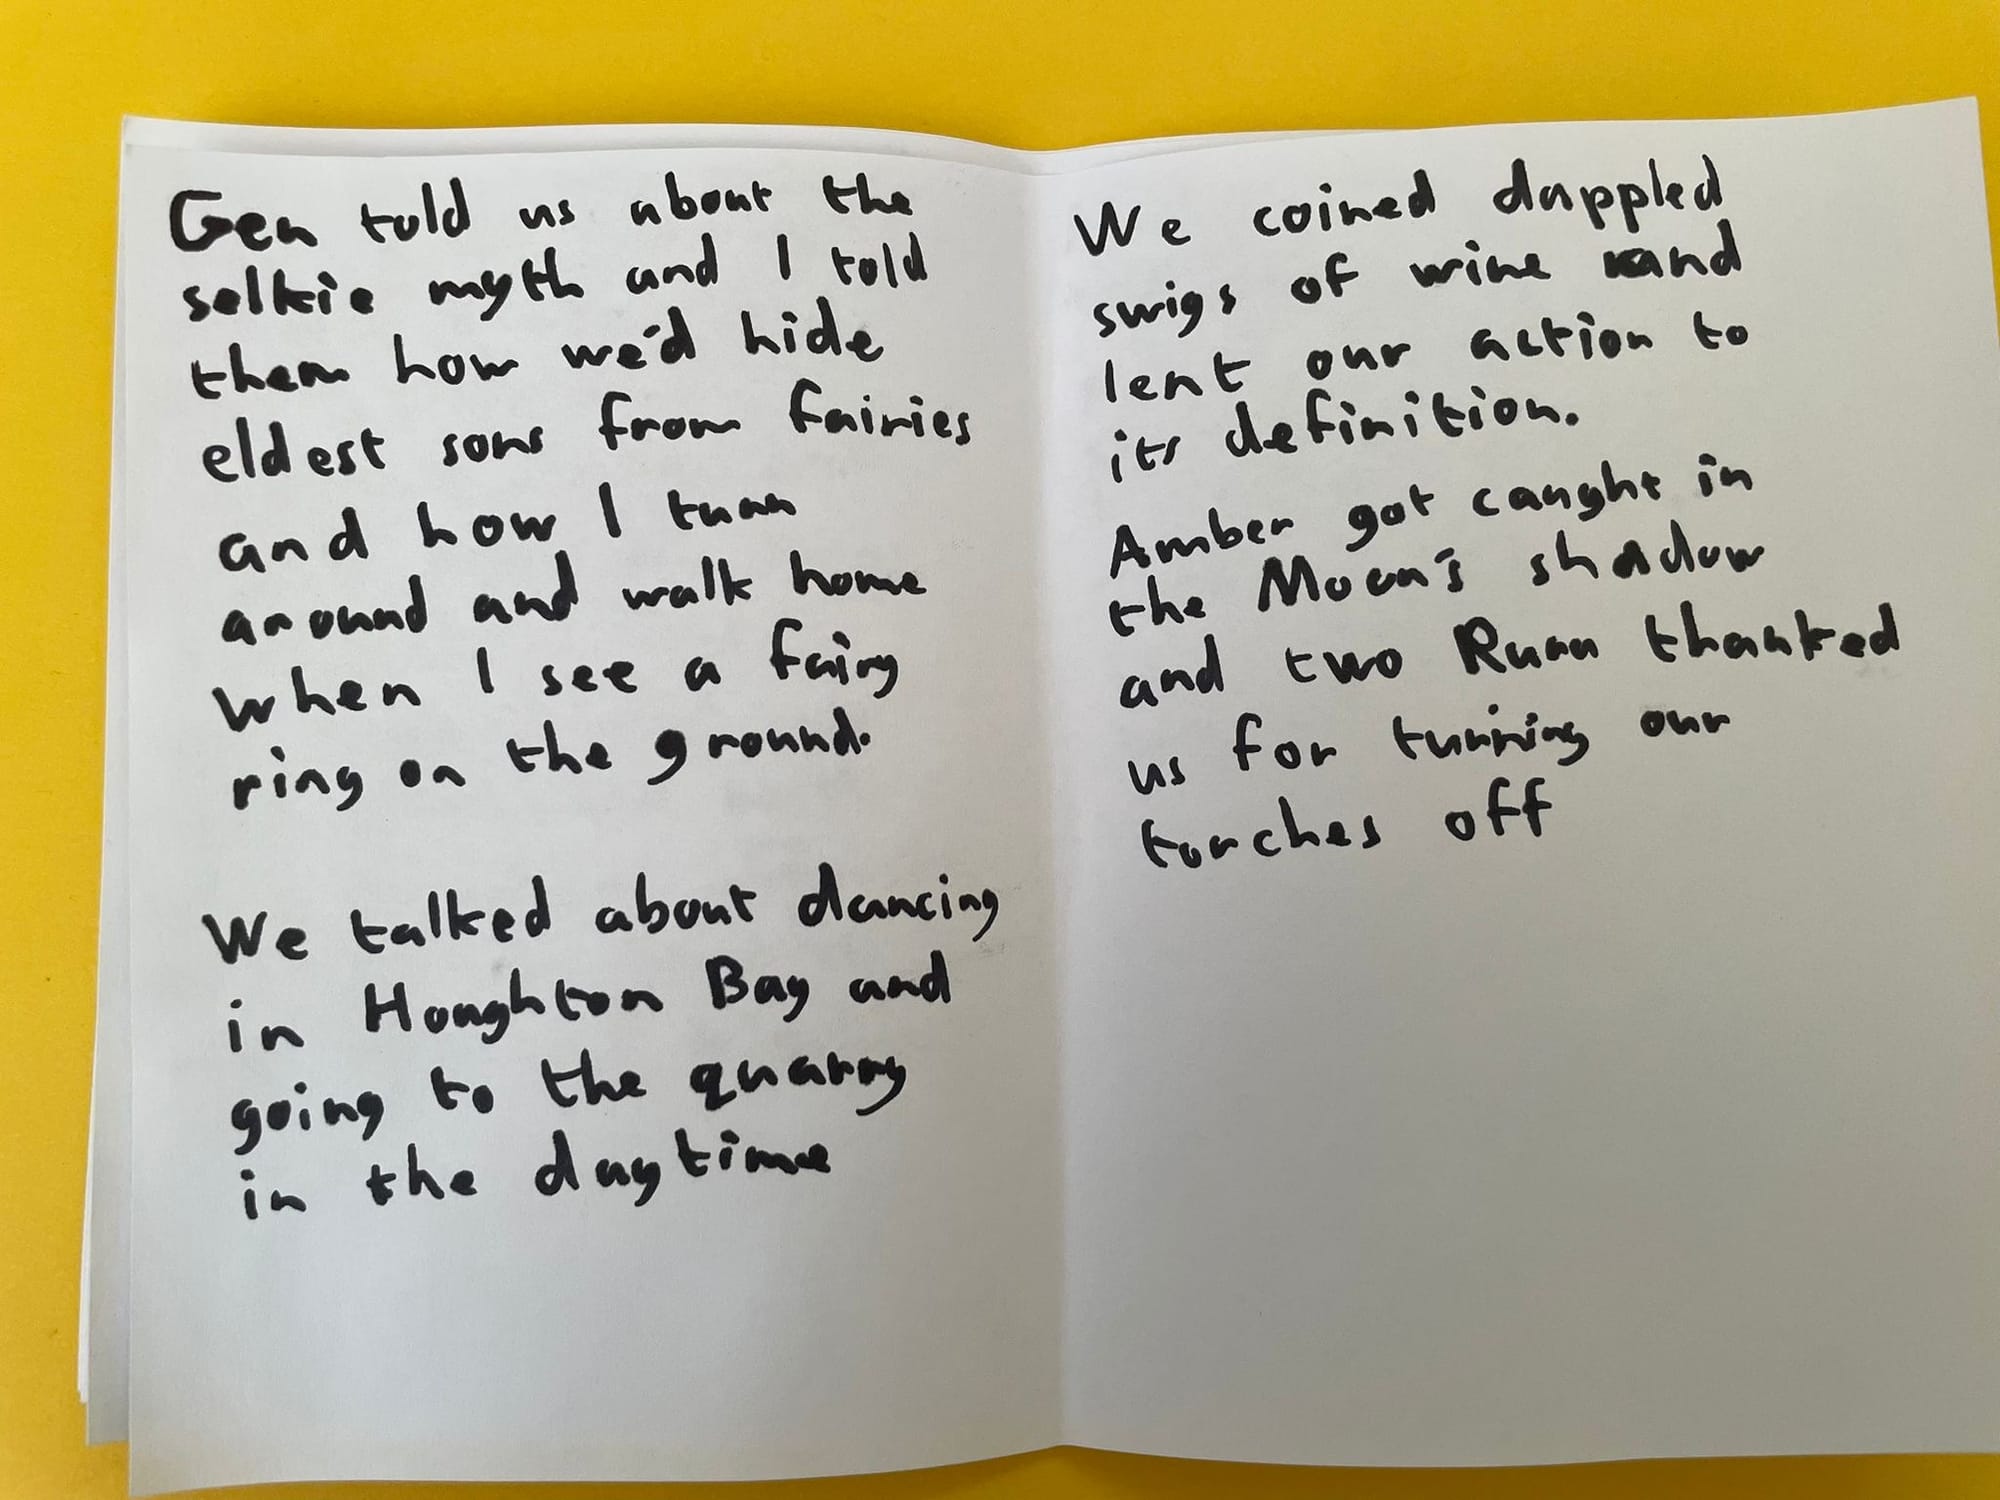 Gen told us about the
selkie myth and I told
them how we'd hide
eldest sons from fairies
and how I turn
around and walk home
when I see a fairy
ring on the ground.
We talked about dancing
in Houghton Bay and
going to the quarry
in the daytime
We coined dappled
swigs of wine and
lent our action to
its definition.
Amber got caught in
the Moon's shadow
and two Ruru thanked
us for turning our
torches off